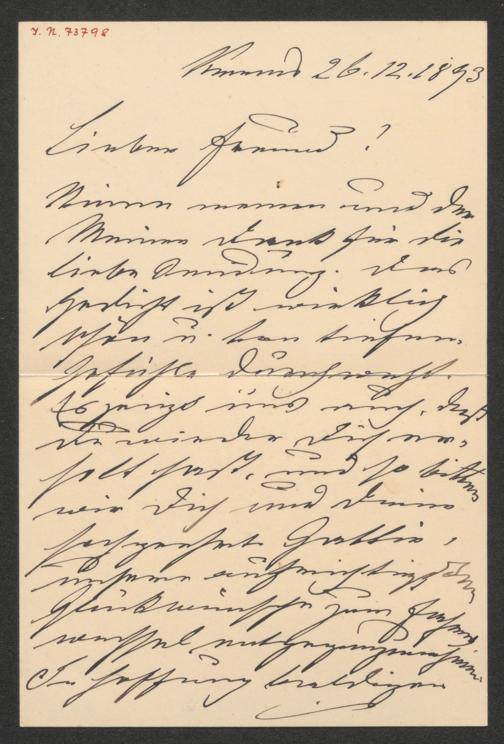 I. N. 73798
26.12.1893
Lieber Freund!
Nimm meinen und der
Meinen Dank für die
liebe Sendung. Das
Gedicht ist wirklich
schön u. von tiefem
Gefühle durchweht.
Es zeigt uns auch, daß
Du wieder Dich er-
holt hast, und so bitten
wir Dich und Deine
hochgeehrte Gattin,
unsere aufrichtigsten
Glückwünsche zum Jahres
wechsel entgegenzunehmen
In Hoffnung baldigen